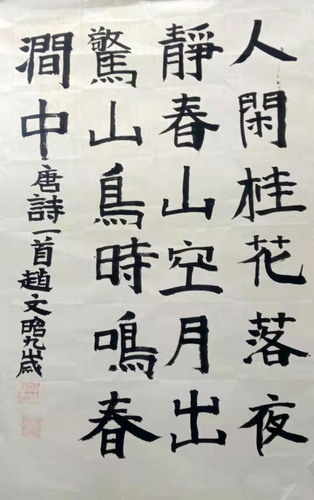 人閑桂花落夜
靜春山空月出
驚山鳥時鳴春
澗中
唐詩一首趙文昭九歲